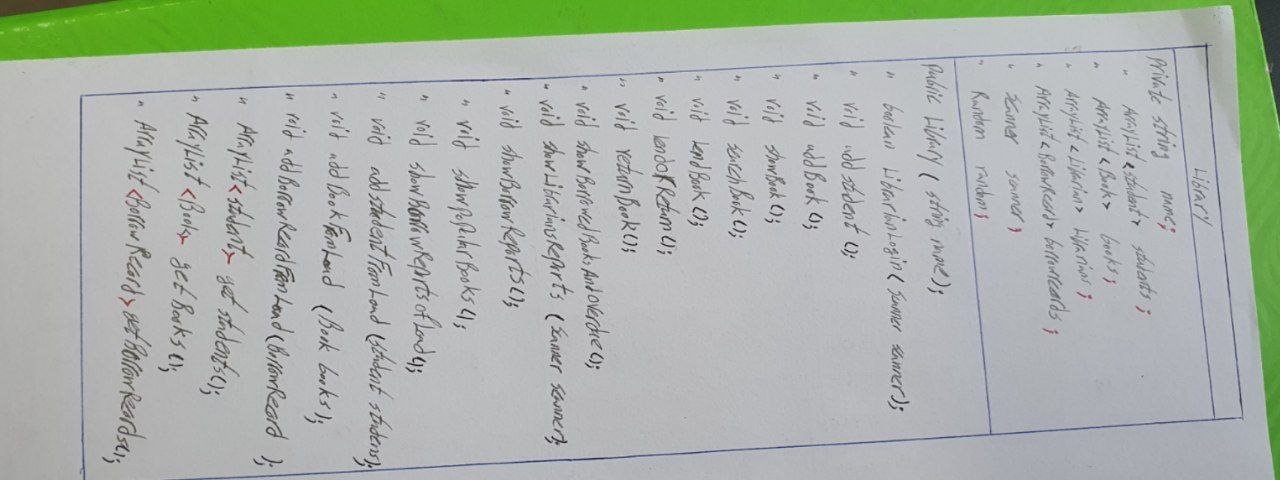 Library
Private string name;
" ArrayList <student> students;
" ArrayList <Book> books;
" ArrayList <Librarian> librarians;
" ArrayList <BorrowRecord> borrowrecords;
" scanner scanner;
" Random random;
Public Library (string name);
" boolean LibrarianLogin (scanner scanner);
" void add student ();
" void addBook ();
" void showBook ();
" void searchBook ();
" void lendBook ();
" void lendorReturn ();
" void returnBook ();
" void showBorrowedBooksAndoverdue ();
" void showLibrariansReports (scanner scanner);
" void showBorrowReports ();
" void showPopularBooks ();
" void showBorrowReportsofLoad ();
" void addstudentFromLoad (student student);
" void addBookFromLoad (Book books);
" void addBorrowRecordFromLoad (BorrowRecord );
" ArrayList <student> get students ();
" ArrayList <Book> getBooks ();
" ArrayList <BorrowRecord> getBorrowRecords ();